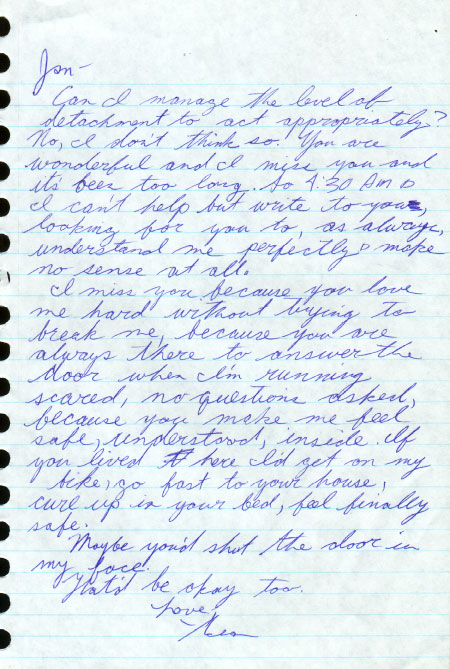 Jon-
Can I manage the level of
detachment to act appropriately?
No, I don't think so. You are
wonderful and I miss you and
it's been too long. So 4:30 AM &
I can't help but write to you,
looking for you to, as always,
understand me perfectly & make
no sense at all.
I miss you because you love
me hard without trying to
break me, because you are
always there to answer the
door when I'm running
scared, no questions asked,
because you make me feel
safe, understood, inside. If
you lived here I'd get on my
bike, go fast to your house,
curl up in your bed, feel finally
safe.
Maybe you'd shut the door in
my face.
That'd be okay too.
Love,